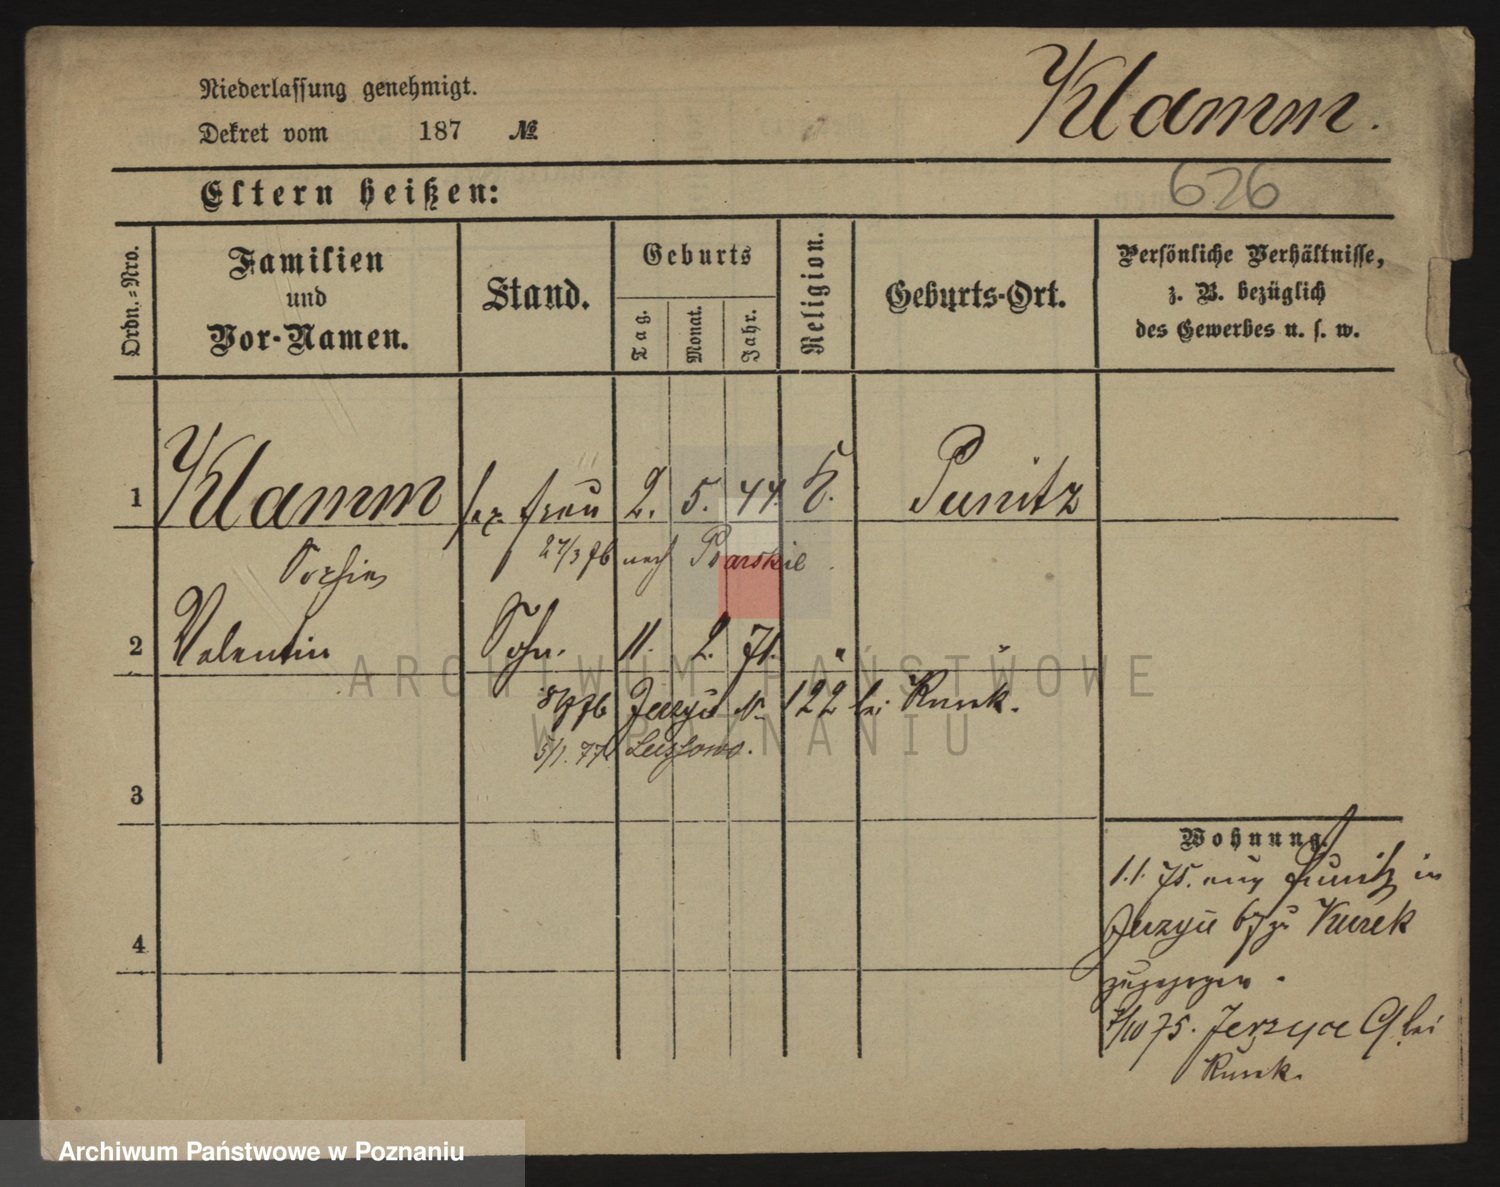 Niederlassung genehmigt.
Dekret vom 187 №
Klamm.
626
Eltern heißen:
Ordn.-Nro.
Familien
und
Vor-Namen.
Stand.
Geburts
Tag.
Monat.
Jahr.
Religion.
Geburts-Ort.
Persönliche Verhältnisse,
z. B. bezüglich
des Gewerbes u. s. w.
1 Klamm sep. frau 2. 5. 44. K. Punitz
Sophie
27/3 76 nach Psarskie
2 Valentin Sohn. 11. 2. 71. " "
ARCHIWUM PAŃSTWOWE
W POZNANIU
8/9 76 Jerzyce N. 122 bei Kurek.
5/1. 77.
3
4
Wohnung.
1.1. 75. aus Punitz in
Jerzyce 67 zu Kurek
zugezogen.
/10 75. Jerzyce 9 bei
Kurek.
Archiwum Państwowe w Poznaniu